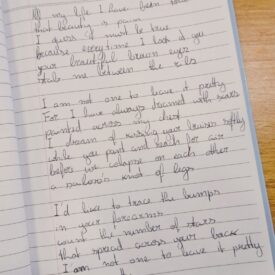 All my life I have been told
that beauty is pain
I guess it must be true
because everytime I look at you
your beautiful brown eyes
stab me between the ribs
I am not one to leave it pretty
For I have always dreamed with scars
painted across my chest
I dream of kissing your bruises softly
while you pant and reach for air
before we collapse on each other
a sailors's knot of legs
I'd like to trace the bumps
in your forearms
count the number of stars
that spread across your back
I am not one to leave it pretty